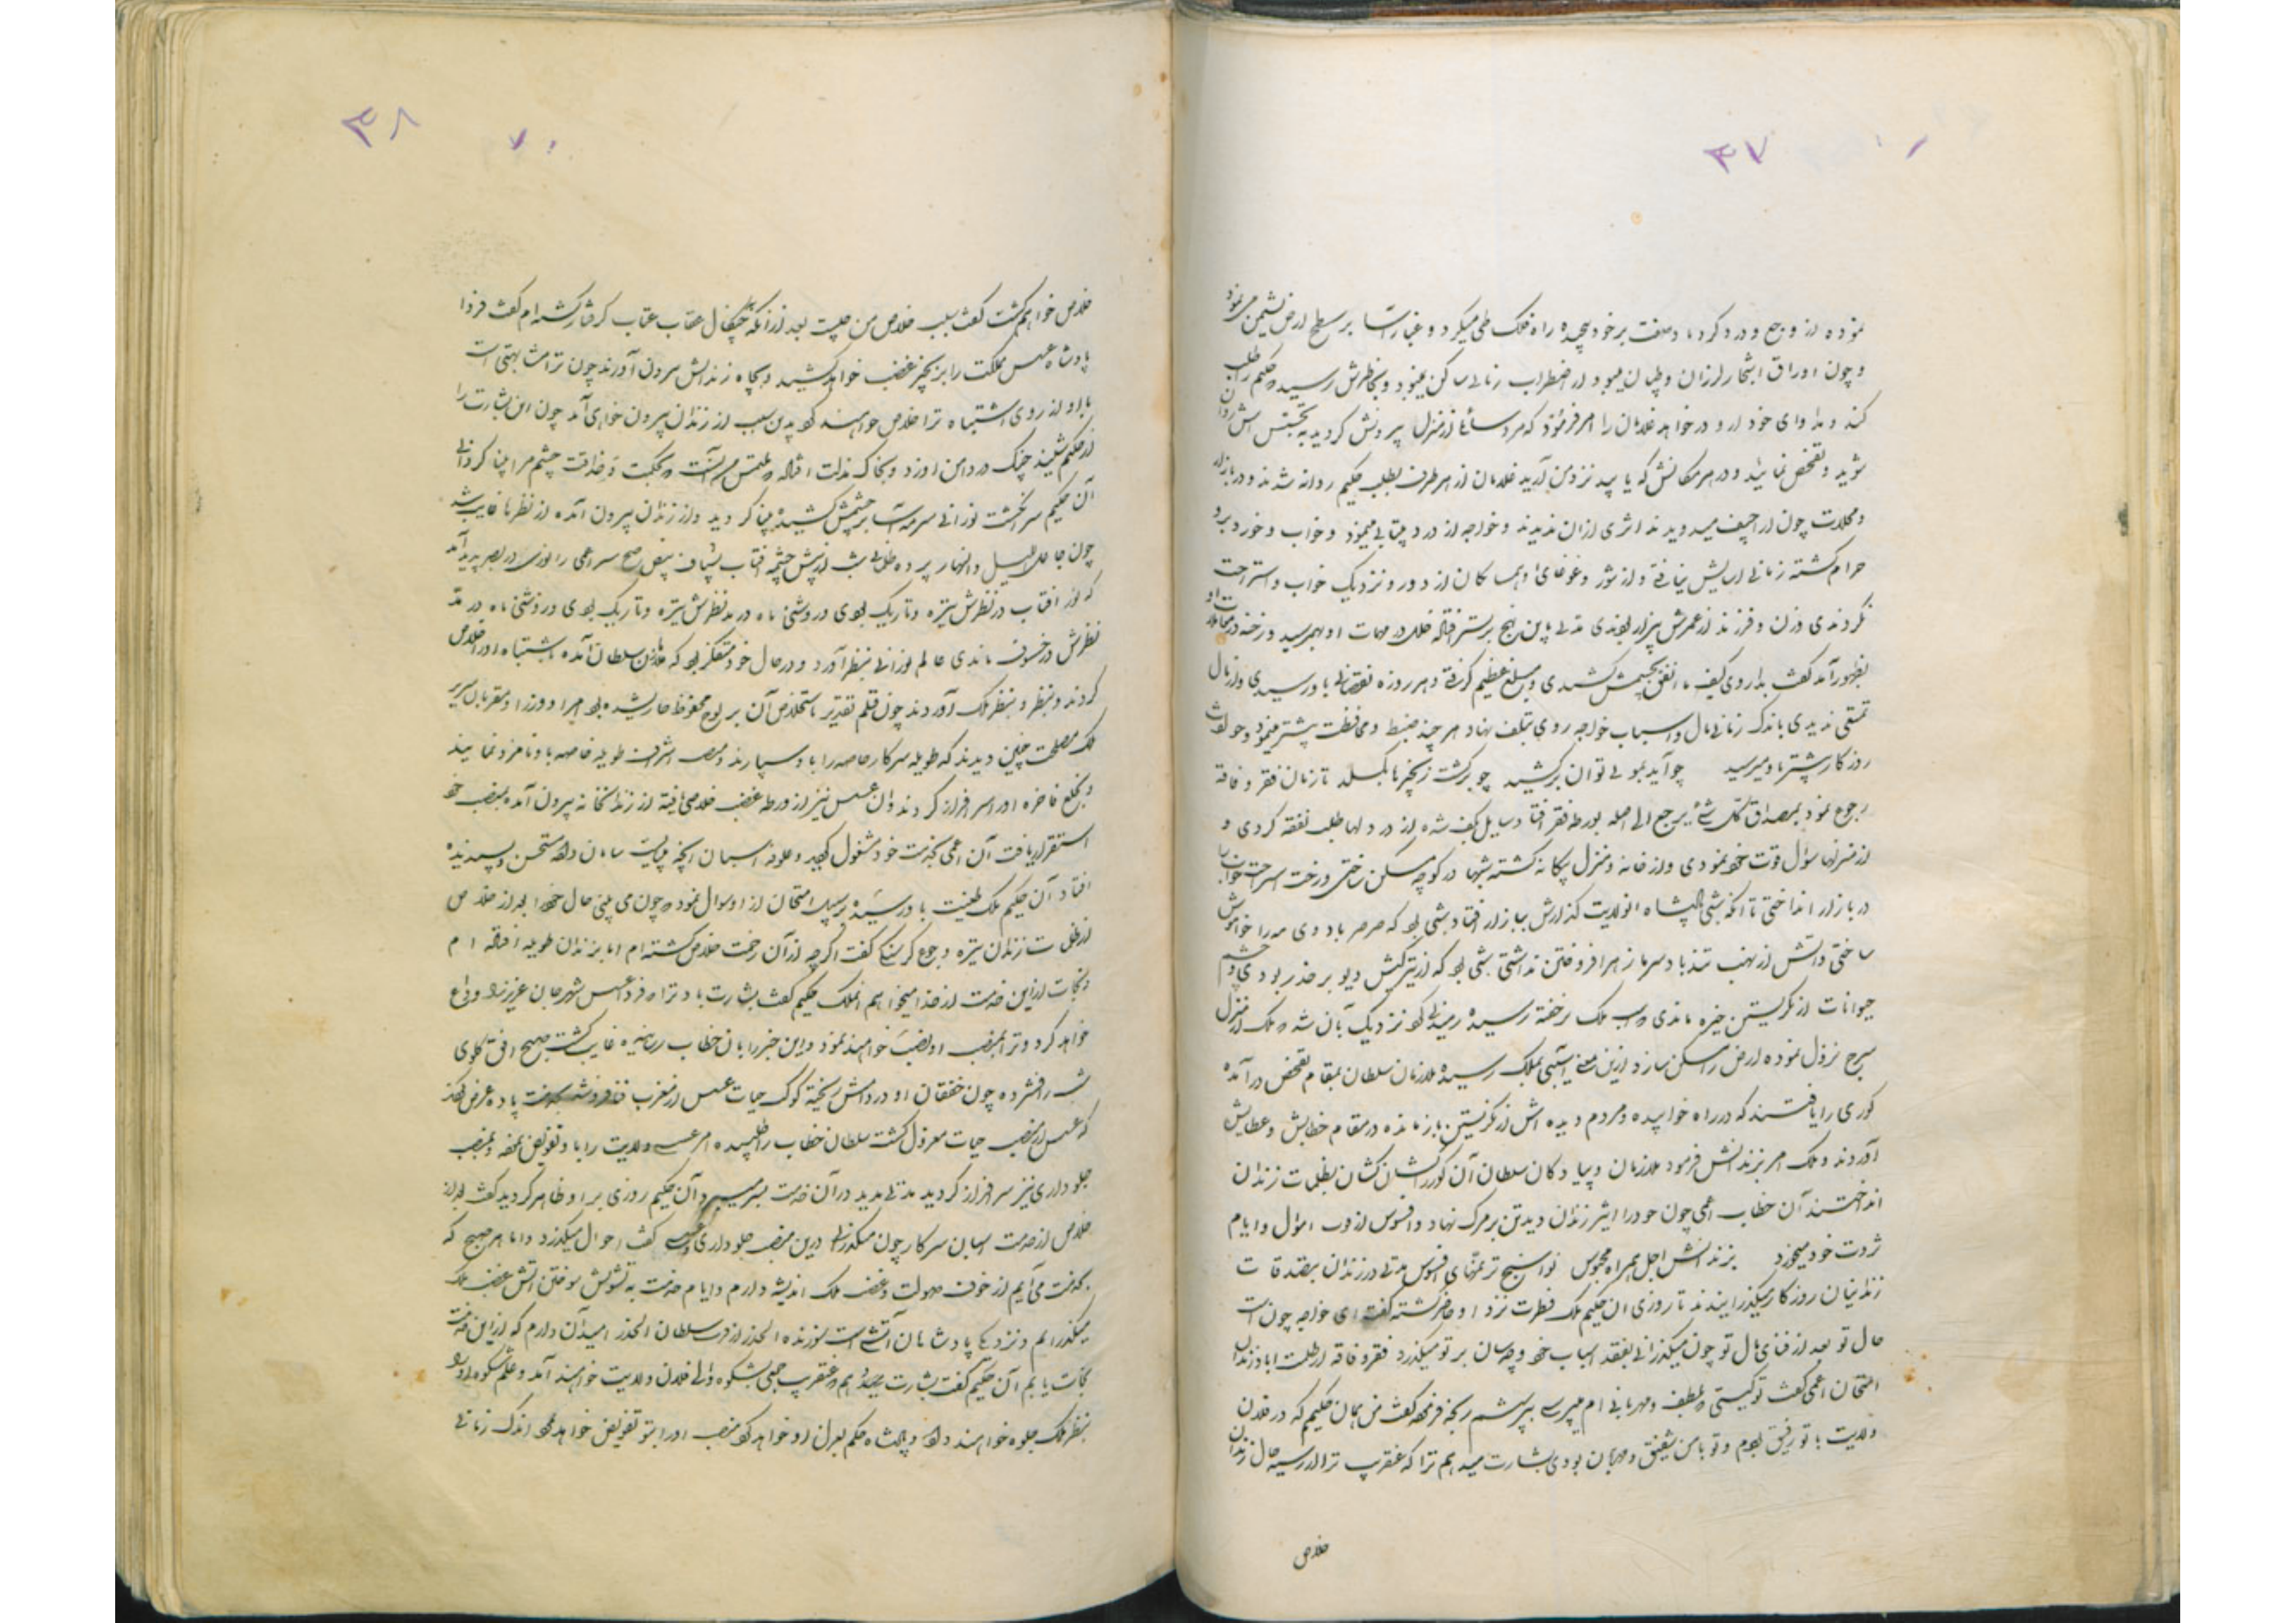 ۳۷
نموده از وجع و درد کردباد صفت برخود پیچیده راه فلک طی میکرد و غبار آسا بر سطح ارض نشیمن می‌نمود
و چون اوراق اشجار لرزان و طپان میبود از اضطراب زمانی ساکن نمیبود و بخاطرش رسید که حکیم را طلب
کند و مداوای خود از او درخواهد غلامان را امر فرمود که مرد سائل از منزل بیرونش کردید به تجسس اش روان
شوید و تفحص نمائید و در هر مکانش که یابید نزد من آرید غلامان از هر طرف بطلب حکیم روانه شدند و در بازار
و محلات چون میدویدند اثری از آن ندیدند و خواجه از درد بیتابی مینمود و خواب و خورد برو
حرام گشته زمانی آسایش نیافته و از شور و غوغای او همسایکان از دور و نزدیک خواب و استراحت
نکردندی و زن و فرزند از عمرش بیزار بودندی مدتی باین نهج بر بستر افتاده خلل در مهمات او بهمرسید و رخنه در معاملات او
بظهور آمد
تمتعی ندیدی باندک زمانی مال و اسباب خواجه روی بتلف نهاد هر چند ضبط و محافظت بیشتر مینمود و حوادث
روزکار بیشتر باو میرسید چو آید بموئی توان برکشید چو برکشت زنجیرها بکسلد تا زمان فقر و فاقه
رجوع نمود بمصداق کل شئ یرجع الی اصله بورطه فقر افتاد و سایل بکف شده از در دلها طلب نفقه کردی و
از منزلها سؤال قوت خود نمودی و از خانه و منزل بیکانه کشته شبها در کوچه مسکن ساختی و رخت استراحت خواب
در بازار انداختی تا آنکه شبی پادشاه آنولایت کذارش ببازار افتاد شبی بود که صرصر باد دی مه را خاموش
ساختی و آتش از نهیب تندباد سرما زهره افروختن نداشتی شبی بود که از تیرکیش دیو بر حذر بودی و چشم
حیوانات از نکریستن خیره ماندی اسب ملک برخفته رسیده رمیدنی کرد نزدیک بآن شد که ملک از منزل
سرج نزول نموده ارض را مسکن سازد ازین معنی آسیبی بملک رسیده ملازمان سلطان بمقام تفحص درآمده
کوری را یافتند که در راه خوابیده و مردم دیده اش از نکریستن بازمانده در مقام خطابش و عطایش
آوردند و ملک امر بزندانش فرمود ملازمان و پیادکان سلطان آن کور را کشان کشان بظلمات زندان
انداختند آن خطاب اعمی چون خود را اسیر زندان دید تن بر مرک نهاد و افسوس از اموال و ایام
ثروت خود میخورد بزندانش اجل همراه محبوس نواسنج ترنمهای افسوس مدتی در زندان بصدقات
زندانیان روزکار میکذرانیدند تا روزی آن حکیم ملک فطرت نزد او حاضر کشته کفت ای خواجه چون است
حال تو بعد از فنای مال تو چون میکذرانی بفقد اسباب خود و چه سان بر تو میکذرد فقر و فاقه از ظلمت آباد زندان
امتحان اعمی کفت تو کیستی که بلطف و مهربانی ام میپرسی بپرسشم رنجه فرموده کفت من همان حکیم که در فلان
ولایت با تو رفیق بودم و تو با من شفیق و مهربان بودی بشارت میدهم ترا که عنقریب ترا از زندان
خلاص
۳۸
خلاص خواهم کشت کفت سبب خلاص من چیست بعد از آنکه بچنکال عقاب عتاب کرفتار کشته ام کفت فردا
پادشاه عسس مملکت را بزنجیر غضب خواهد کشید و بچاه زندانش بیرون آورند چون ترا مشابهتی است
با او از روی اشتباه ترا خلاص خواهند کرد بدین سبب از زندان بیرون خواهی آمد چون این بشارت را
از حکیم شنید چنک در دامن او زد و بخاک مذلت افتاده ملتمس میشد که بحکمت و حذاقت چشم مرا بینا کردانی
آن حکیم سر انکشت نورانی سرمه آسا بر چشمش کشیده بینا کردید و از زندان بیرون آمده از نظرها غایب شد
چون جاعل اللیل والنهار پرده ظلمانی شب از پیش چشمه آفتاب بشکافت
که نور آفتاب در نظرش تیره و تاریک بودی و روشنی ماه در مد نظرش تیره و تاریک بودی و روشنی ماه در مد
نظرش در خسوف ماندی عالم نورانی بنظر آورد و در حال خود متفکر بود که ملازمان سلطان آمده باشتباه او را خلاص
کردند و بنظر ملک آوردند چون قلم تقدیر باستخلاص آن بر لوح محفوظ جاری شده بود امرا و وزرا و مقربان سریر
ملک مصلحت چنین دیدند که طویله سرکار خاصه را باو سپارند و منصب اشرف طویله خاصه باو نامزد نمایند
و بخلع فاخره او را سرافراز کردند و آن عسس نیز از ورطه غضب خلاصی یافته از زندانخانه بیرون آمده بمنصب خود
استقرار یافت آن اعمی بخدمت خود مشغول کردید و علوفه اسبان آنچه میبایست سامان داده مستحسن و پسندیده
افتاد آن حکیم ملک طینت باو رسیده بر سبیل امتحان از او سوال نمود که چون می بینی حال خود را بعد از خلاص
از ظلمات زندان تیره و جوع و کرسنکی کفت اکرچه از آن زحمت خلاص کشته ام اما بزندان طویله افتاده ام
و نجات از این خدمت از خدا میخواهم آنملک حکیم کفت بشارت باد ترا که فردا عسس شهر جان عزیز را وداع
خواهد کرد و ترا بمنصب او نصب خواهند نمود و این خبر را بآن خطاب رسانیده غایب کشت صبح افق کلوی
شب را فشرده چون خفقان او در دامش ریخته کوکب حیات عسس از مغرب فنا فروشد
که عسس از منصب حیات معزول کشت سلطان خطاب را طلبیده امر عسس ولایت را باو تفویض نموده و بمنصب
جلوداری نیز سرافراز کردید مدتی مدید در آن خدمت بسر میبرد آن حکیم روزی بر او ظاهر کردید کفت بعد از
خلاص از خدمت اسبان سرکار چون میکذرانی درین منصب جلوداری و عسسی کفت احوال میکذرد و اما هر صبح که
بخدمت می آیم از خوف صولت و غضب ملک اندیشه دارم و ایام خدمت به تشویش سوختن آتش غضب ملک
میکذرانم و نزدیکی پادشاهان آتشی است سوزنده الحذر از قرب سلطان الحذر امید آن دارم که از این خدمت
نجات یابم آن حکیم کفت بشارت میدهم که عنقریب جمعی بشکوه والی فلان ولایت خواهند آمد و علم شکوه او را
بنظر ملک جلوه خواهند داد و پادشاه حکم بعزل او خواهد کرد منصب او را بتو تفویض خواهد نمود اندک زمانی